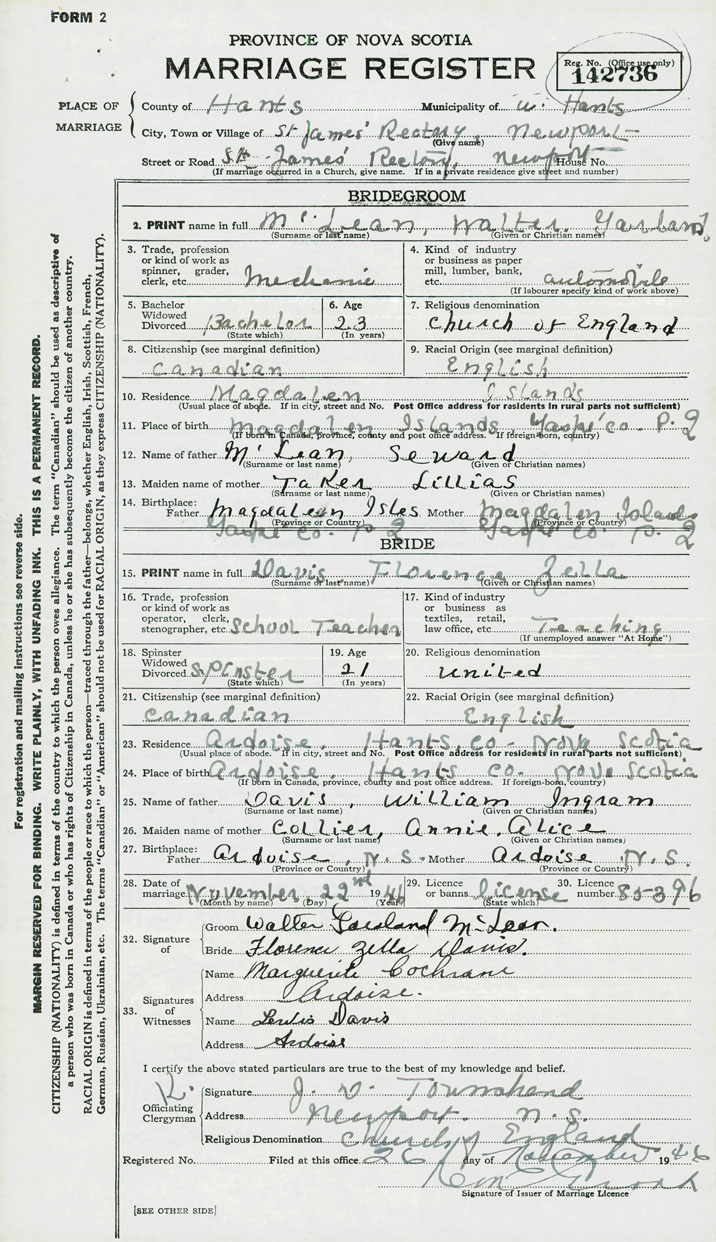 FORM 2
PROVINCE OF NOVA SCOTIA
MARRIAGE REGISTER
Reg. No. (Office use only)
142736
PLACE OF MARRIAGE
County of Hants Municipality of W. Hants
City, Town or Village of St James' Rectory, Newport
(Give name)
Street or Road St. James' Rectory, Newport House No.
(If marriage occurred in a Church, give name. If in a private residence give street and number)
BRIDEGROOM
2. PRINT name in full McLean, Walter Garland
(Surname or last name) (Given or Christian names)
3. Trade, profession or kind of work as spinner, grader, clerk, etc. Mechanic
4. Kind of industry or business as paper mill, lumber, bank, etc. automobile
(If labourer specify kind of work above)
5. Bachelor Widowed Divorced Bachelor
(State which)
6. Age 23
(In years)
7. Religious denomination
Church of England
8. Citizenship (see marginal definition)
Canadian
9. Racial Origin (see marginal definition)
English
10. Residence Magdalen Islands
(Usual place of abode. If in city, street and No. Post Office address for residents in rural parts not sufficient)
11. Place of birth Magdalen Islands, Gaspe Co. P. Q
(If born in Canada, province, county and post office address. If foreign-born, country)
12. Name of father McLean, Seward
(Surname or last name) (Given or Christian names)
13. Maiden name of mother Taker Lillias
(Surname or last name) (Given or Christian names)
14. Birthplace: Father Magdaleen Isles Mother Magdalen Islands
(Province or Country) (Province or Country)
Gaspe Co. P Q Gaspe Co. P. Q
BRIDE
15. PRINT name in full Davis Florence Zella
(Surname or last name) (Given or Christian names)
16. Trade, profession or kind of work as operator, clerk, stenographer, etc. School Teacher
17. Kind of industry or business as textiles, retail, law office, etc. Teaching
(If unemployed answer "At Home")
18. Spinster Widowed Divorced Spinster
(State which)
19. Age 21
(In years)
20. Religious denomination
United
21. Citizenship (see marginal definition)
Canadian
22. Racial Origin (see marginal definition)
English
23. Residence Ardoise, Hants, Co. Nova Scotia
(Usual place of abode. If in city, street and No. Post Office address for residents in rural parts not sufficient)
24. Place of birth Ardoise, Hants Co. Nova Scotia
(If born in Canada, province, county and post office address. If foreign-born, country)
25. Name of father Davis, William Ingram
(Surname or last name) (Given or Christian names)
26. Maiden name of mother Collier, Annie, Alice
(Surname or last name) (Given or Christian names)
27. Birthplace: Father Ardoise, N.S. Mother Ardoise N.S.
(Province or Country) (Province or Country)
28. Date of marriage November 22nd 1946
(Month by name) (Day) (Year)
29. Licence or banns. license
(State which)
30. Licence number. 85396
32. Signature of
Groom Walter Garland McLean.
Bride Florence Zella Davis.
33. Signatures of Witnesses
Name Marguerite Cochrane
Address Ardoise.
Name Leslis Davis
Address Ardoise
I certify the above stated particulars are true to the best of my knowledge and belief.
Officiating Clergyman
Signature J. V. Townshend
Address Newport. N.S.
Religious Denomination Church of England
Registered No. Filed at this office 26 day of November 1946
Signature of Issuer of Marriage Licence
[SEE OTHER SIDE]
For registration and mailing instructions see reverse side.
MARGIN RESERVED FOR BINDING. WRITE PLAINLY, WITH UNFADING INK. THIS IS A PERMANENT RECORD.
CITIZENSHIP (NATIONALITY) is defined in terms of the country to which the person owes allegiance. The term "Canadian" should be used as descriptive of
a person who was born in Canada or who has rights of Citizenship in Canada, unless he or she has subsequently become the citizen of another country.
RACIAL ORIGIN is defined in terms of the people or race to which the person—traced through the father—belongs, whether English, Irish, Scottish, French,
German, Russian, Ukrainian, etc. The terms "Canadian" or "American" should not be used for RACIAL ORIGIN, as they express CITIZENSHIP (NATIONALITY).